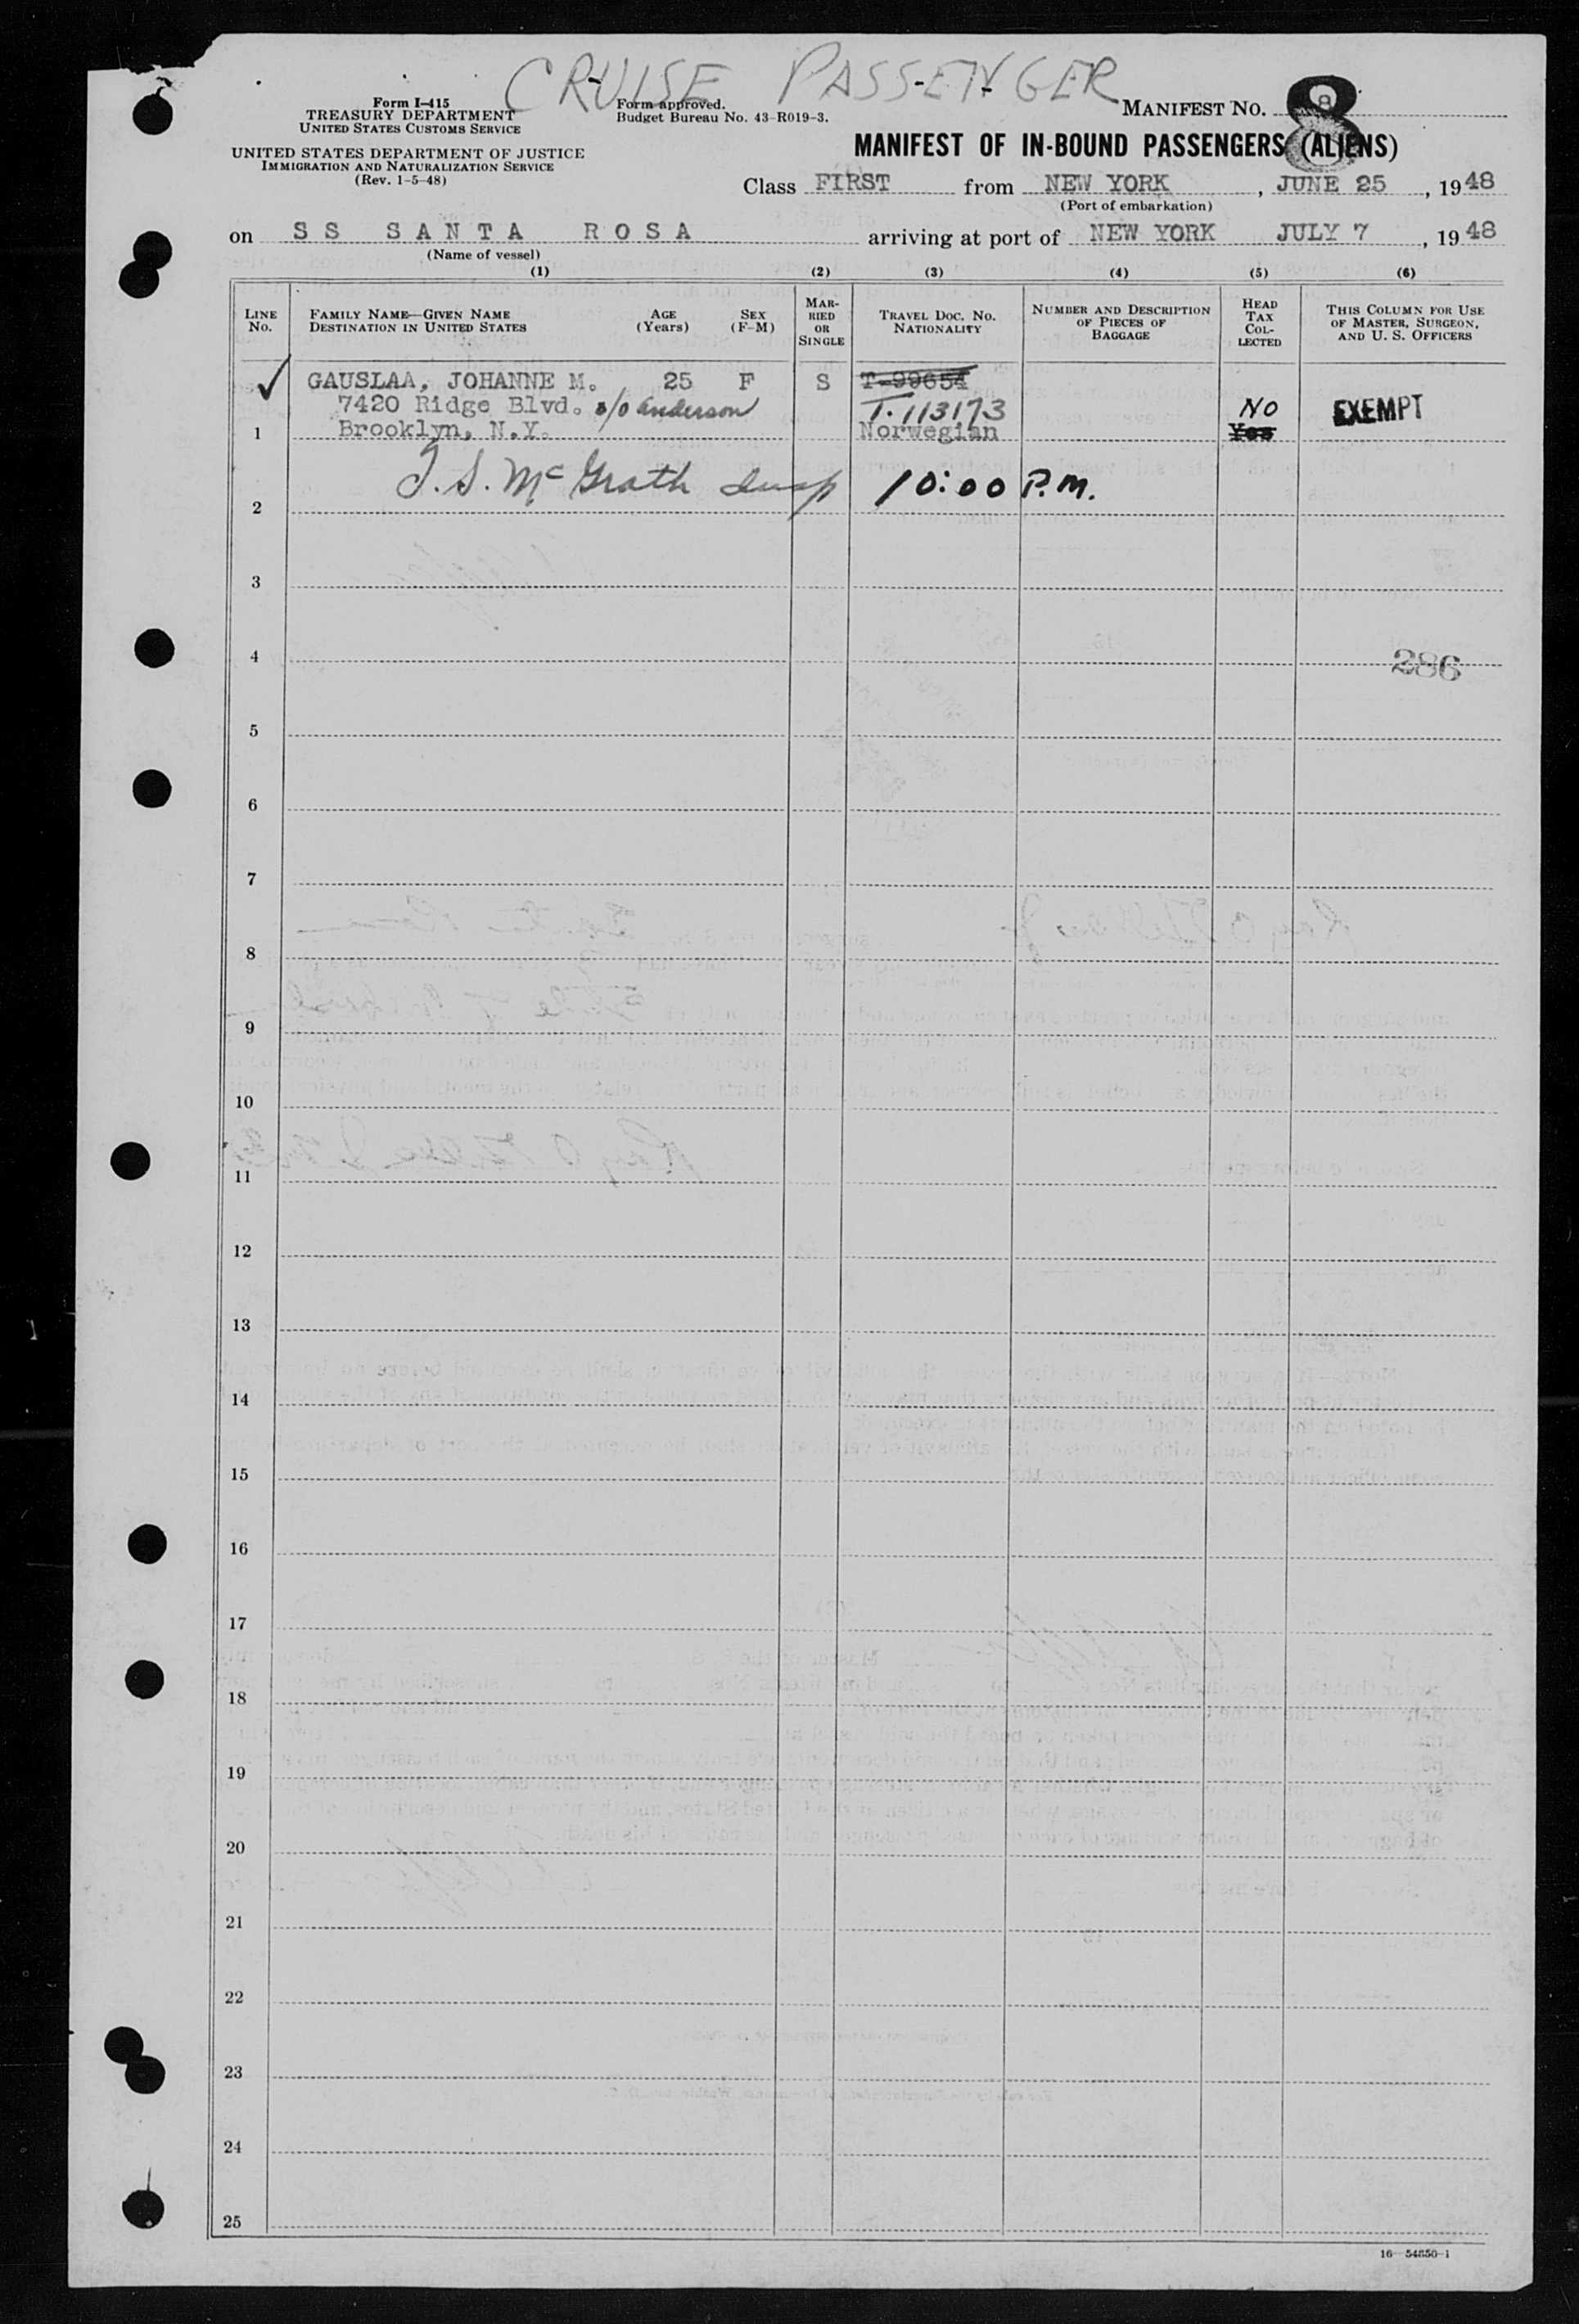 CRUISE PASSENGER
Form I-415
TREASURY DEPARTMENT
UNITED STATES CUSTOMS SERVICE
Form approved.
Budget Bureau No. 43-R019-3.
MANIFEST NO. 8
8
UNITED STATES DEPARTMENT OF JUSTICE
IMMIGRATION AND NATURALIZATION SERVICE
(Rev. 1-5-48)
MANIFEST OF IN-BOUND PASSENGERS (ALIENS)
Class FIRST from NEW YORK, JUNE 25, 1948
(Port of embarkation)
on SS SANTA ROSA arriving at port of NEW YORK JULY 7, 1948
(Name of vessel)
(1) (2) (3) (4) (5) (6)
LINE No.
FAMILY NAME—GIVEN NAME
DESTINATION IN UNITED STATES
AGE (Years)
SEX (F-M)
MARRIED OR SINGLE
TRAVEL DOC. NO. NATIONALITY
NUMBER AND DESCRIPTION OF PIECES OF BAGGAGE
HEAD TAX COLLECTED
THIS COLUMN FOR USE OF MASTER, SURGEON, AND U. S. OFFICERS
GAUSLAA, JOHANNE M. 25 F S T-99654
7420 Ridge Blvd. c/o Anderson T-113173 NO EXEMPT
1 Brooklyn, N.Y. Norwegian Yes
T. S. McGrath Insp 10:00 P.M.
2
3
4 286
5
6
7
8
9
10
11
12
13
14
15
16
17
18
19
20
21
22
23
24
25
16-54850-1